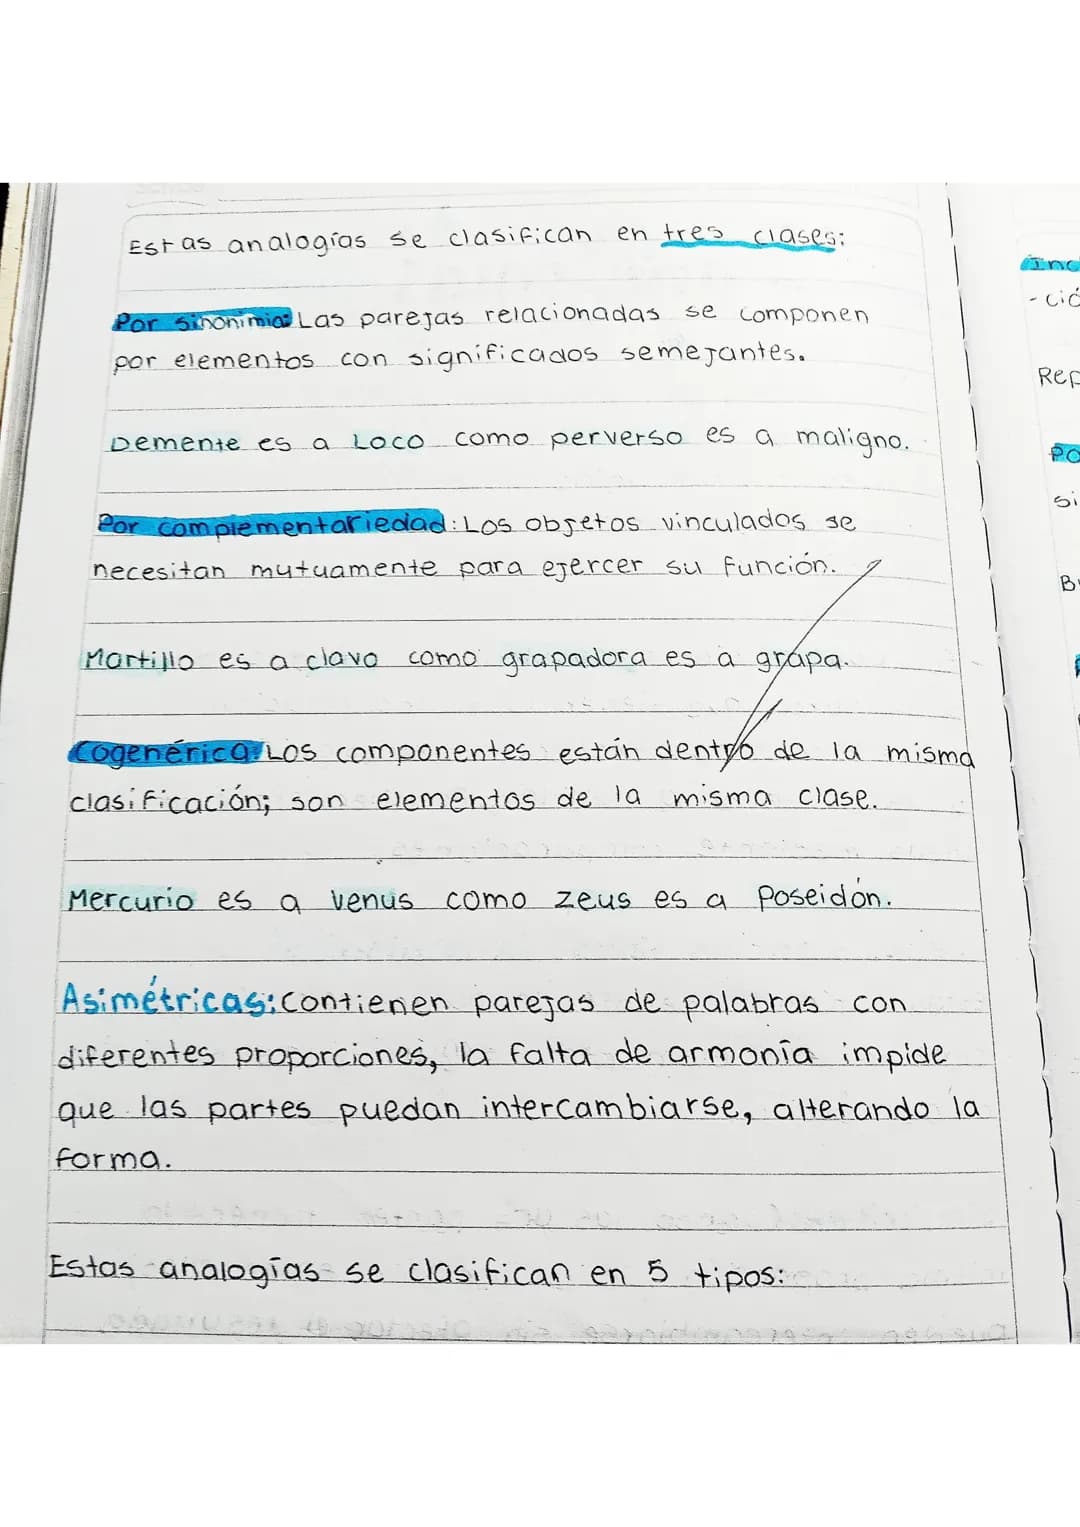 Estas analogías se clasifican en tres clases:
Por sinonimia: Las parejas relacionadas se componen
por elementos con significados semejantes.
Demente es a Loco como perverso es a maligno.
Por complementariedad: Los objetos vinculados se
necesitan mutuamente para ejercer su función.
Martillo es a clavo como grapadora es a grapa.
Cogenérica: Los componentes están dentro de la misma
clasificación; son elementos de la misma clase.
Mercurio es a Venus como Zeus es a Poseidón.
Asimétricas: Contienen parejas de palabras con
diferentes proporciones, la falta de armonía impide
que las partes puedan intercambiarse, alterando la
forma.
Estas analogías se clasifican en 5 tipos: